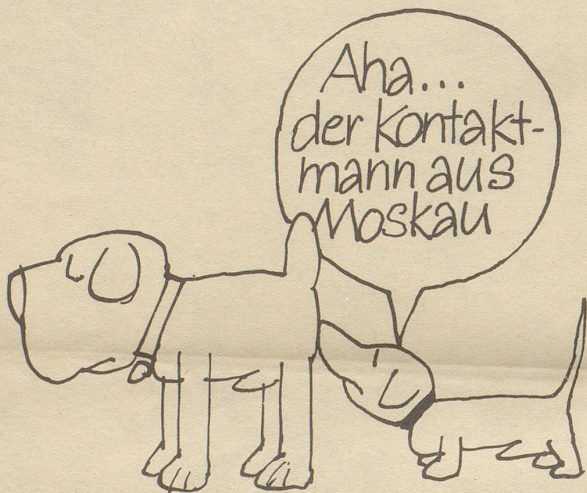 Aha...
der Kontakt-
mann aus
Moskau